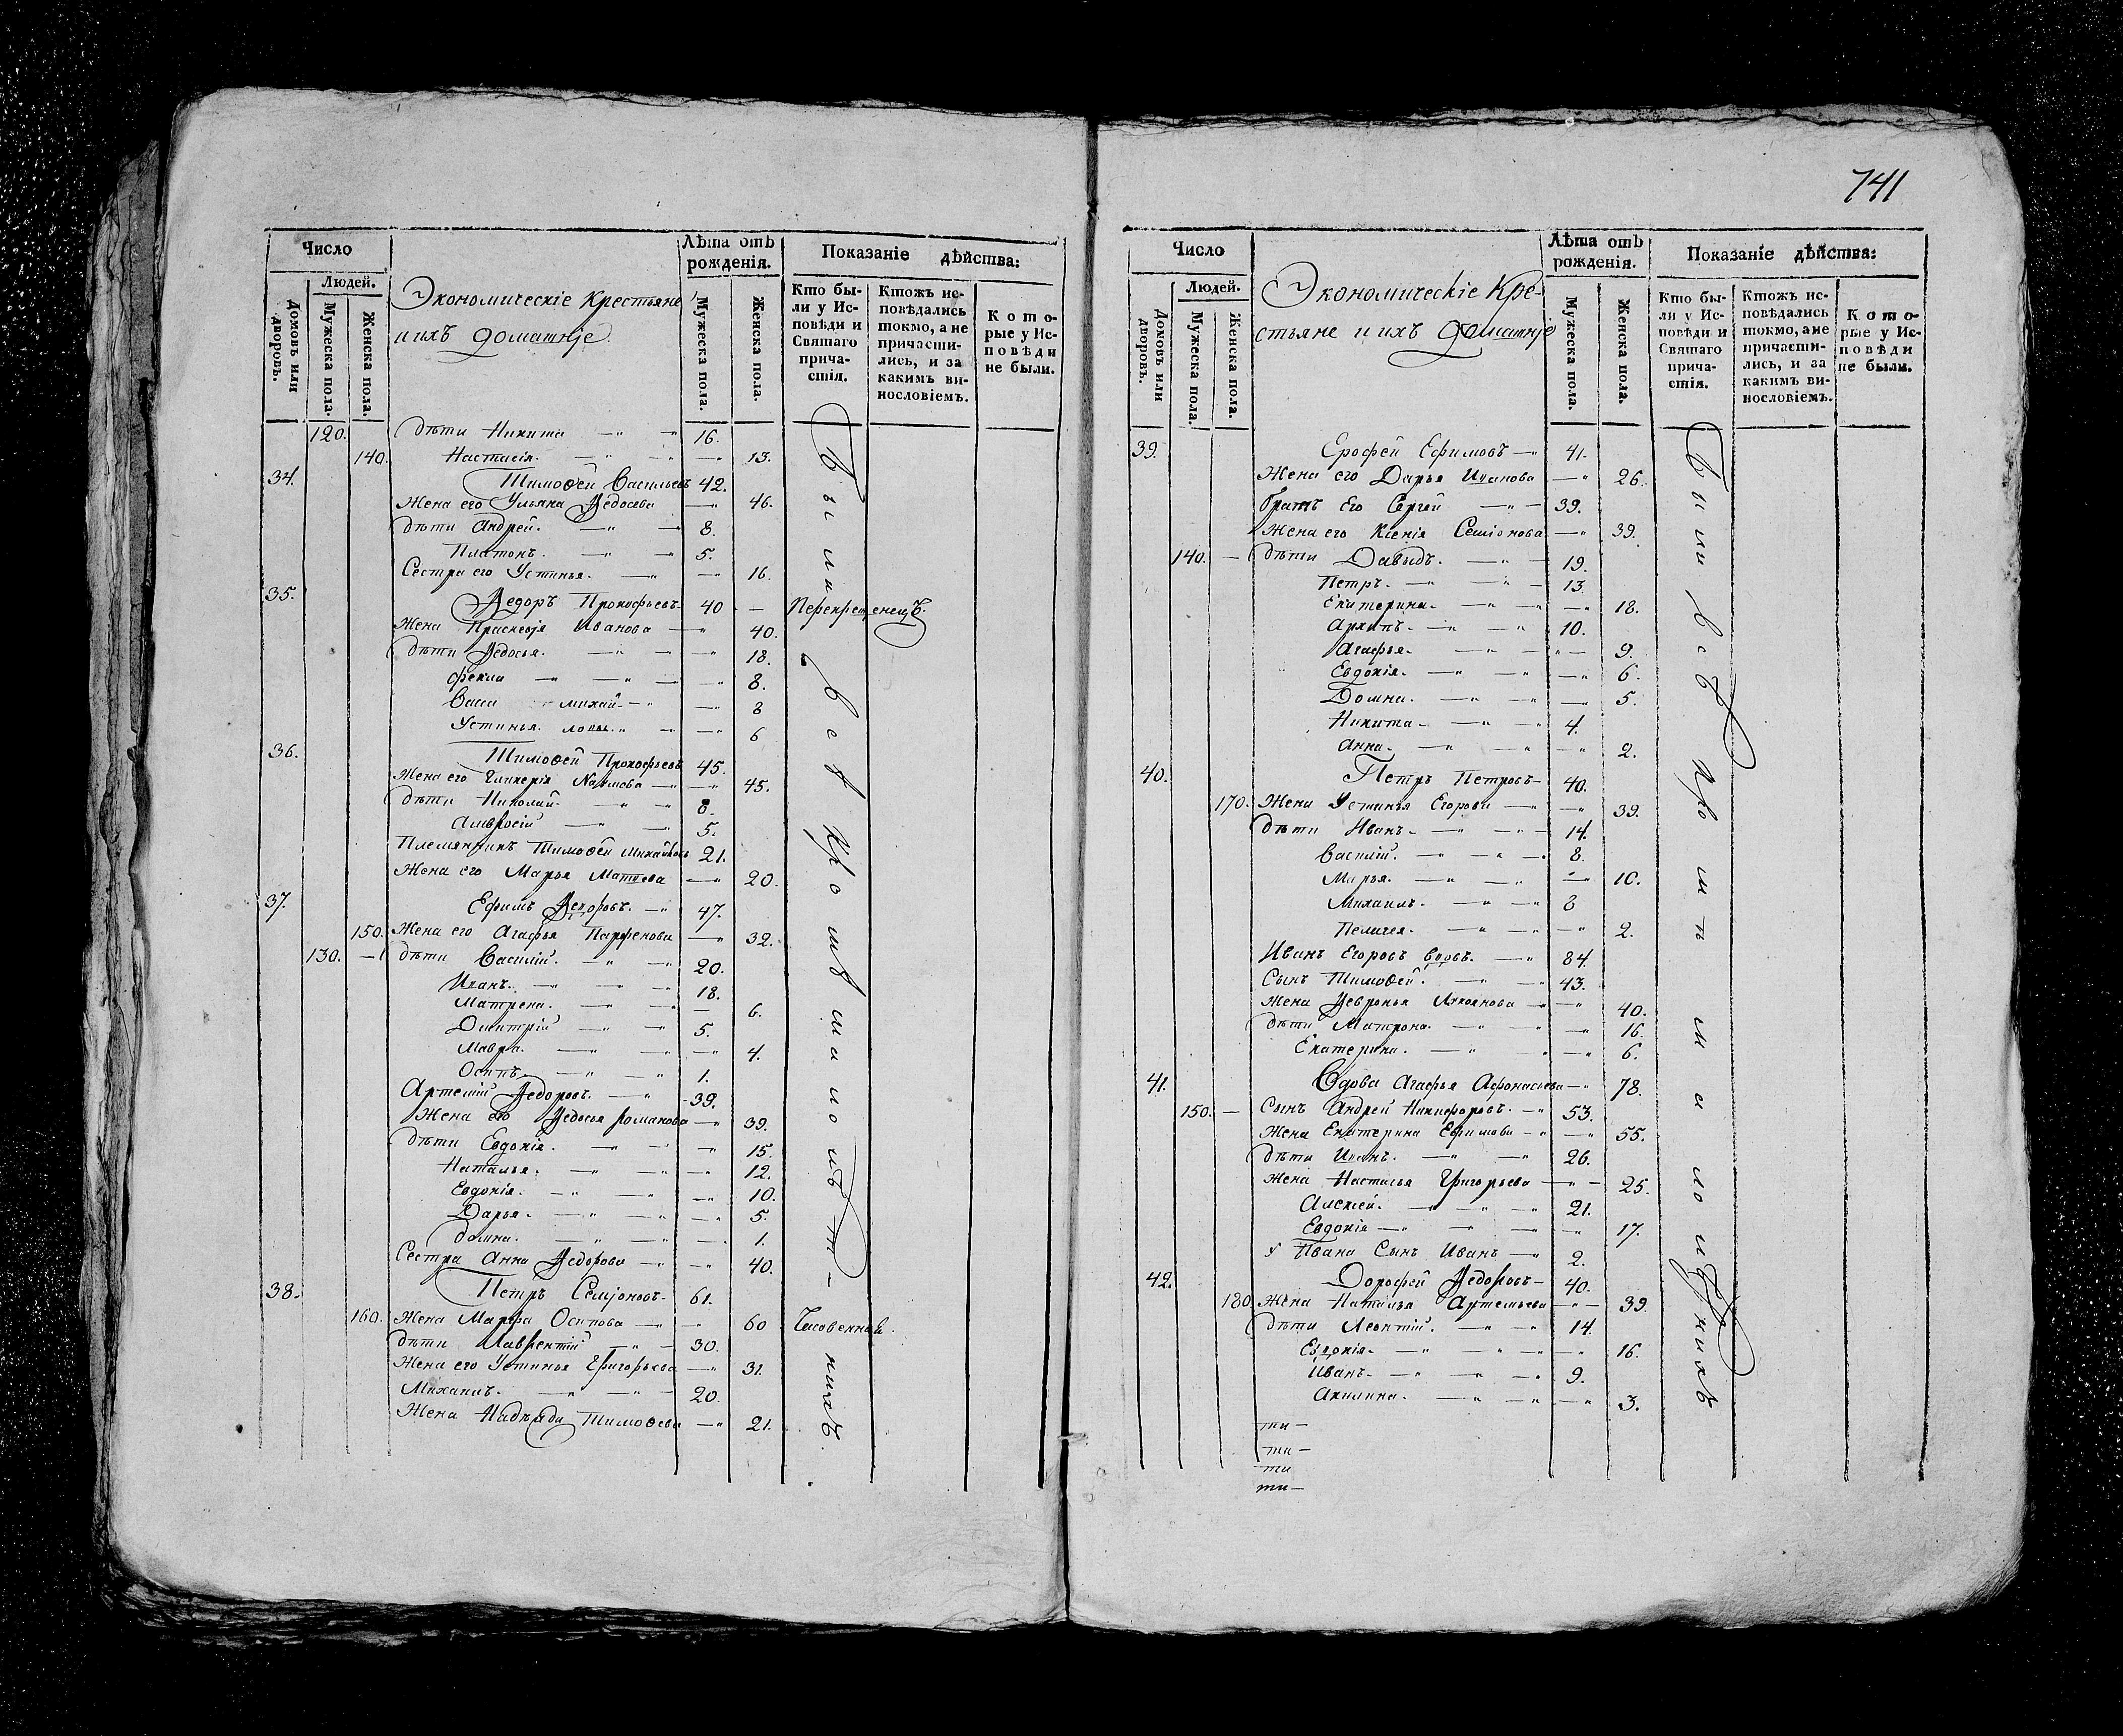 741
Число
Лѣта отъ рожденія.
Показаніе дѣйства:
Домовъ или дворовъ.
Людей.
Мужеска пола.
Женска пола.
Экономическіе Крестьяне
и ихъ домашнѣе
Мужеска пола.
Женска пола.
Кто бы-
ли у Ис-
повѣди и
Святаго
прича-
стія.
Ктожъ ис-
повѣдались
токмо, а не
причасти-
лись, и за
какимъ ви-
нословіемъ.
Кото-
рые у Ис-
повѣди
не были.
120. дѣти Никита 16.
140. Настасія. 13.
34. Тимоѳей Васильевъ 42.
Жена его Ульяна Ѳедосева 46.
дѣти Андрей. 8.
Платонъ. 5.
Сестра его Устинья. 16.
35. Ѳедоръ Прокофьевъ 40 Перекрещенецъ.
Жена Прасковія Иванова 40.
дѣти Ѳедосья. 18.
Фекла 8.
Васса 8
Устинья. 6
36. Тимоѳей Прокофьевъ 45.
Жена его Гликерія Наумова 45.
дѣти Николай 8.
Амвросій 5.
Племянникъ Тимоѳей Михайловъ 21.
Жена его Марья Матвева 20.
37. Ефимъ Ѳедоровъ. 47.
150. Жена его Агафья Парфенова 32.
130. дѣти Василій. 20.
Иванъ. 18.
Матрена. 6.
Дмитрій 5.
Мавра. 4.
Осипъ 1.
Артемій Ѳедоровъ. 39.
Жена его Ѳедосья Романова 39.
дѣти Евдокія. 15.
Наталья. 12.
Евдокія. 10.
Дарья. 5.
Домна. 1.
Сестра Анна Ѳедорова 40.
38. Петръ Семіоновъ 61.
160. Жена Марфа Осипова 60
дѣти Лаврентій 30.
Жена его Устинья Григорьева 31.
Михаилъ. 20.
Жена Надежда Тимоѳева 21.
Число
Лѣта отъ рожденія.
Показаніе дѣйства:
Домовъ или дворовъ.
Людей.
Мужеска пола.
Женска пола.
Экономическіе Кре-
стьяне и ихъ домашнѣе
Мужеска пола.
Женска пола.
Кто бы-
ли у Ис-
повѣди и
Святаго
прича-
стія.
Ктожъ ис-
повѣдались
токмо, а не
причасти-
лись, и за
какимъ ви-
нословіемъ.
Кото-
рые у Ис-
повѣди
не были.
39. Ерофей Ефимовъ 41.
Жена его Дарья Иванова 26.
братъ его Сергей 39.
Жена его Ксенія Семіонова 39.
140. дѣти Давыдъ. 19.
Петръ. 13.
Екатерина. 18.
Архипъ. 10.
Агафья. 9.
Евдокія. 6.
Домна. 5.
Никита 4.
Анна. 2.
40. Петръ Петровъ 40.
170. Жена Устинья Егорова 39.
дѣти Иванъ 14.
Василій. 8.
Марья. 10.
Михаилъ. 8
Пелагея. 2.
Иванъ Егоровъ вдовъ. 84.
Сынъ Тимоѳей. 43.
Жена Ѳевронья Лукоянова 40.
дѣти Матрона. 16.
Екатерина. 6.
41. Вдова Агафья Афонасьева 78.
150. Сынъ Андрей Никифоровъ. 53.
Жена Екатерина Ефимова 55.
дѣти Иванъ. 26.
Жена Настасья Григорьева 25.
Алексей. 21.
Евдокія 17.
У Ивана Сынъ Иванъ 2.
42. Дорофей Ѳедоровъ 40.
180. Жена Наталья Артемьева 39.
дѣти Леонтій. 14.
Евдокія 16.
Иванъ. 9.
Акилина. 3.
ти
ти
ти
ти
Были всѣ кромѣ малолѣтнихъ
Были всѣ кромѣ малолѣтнихъ